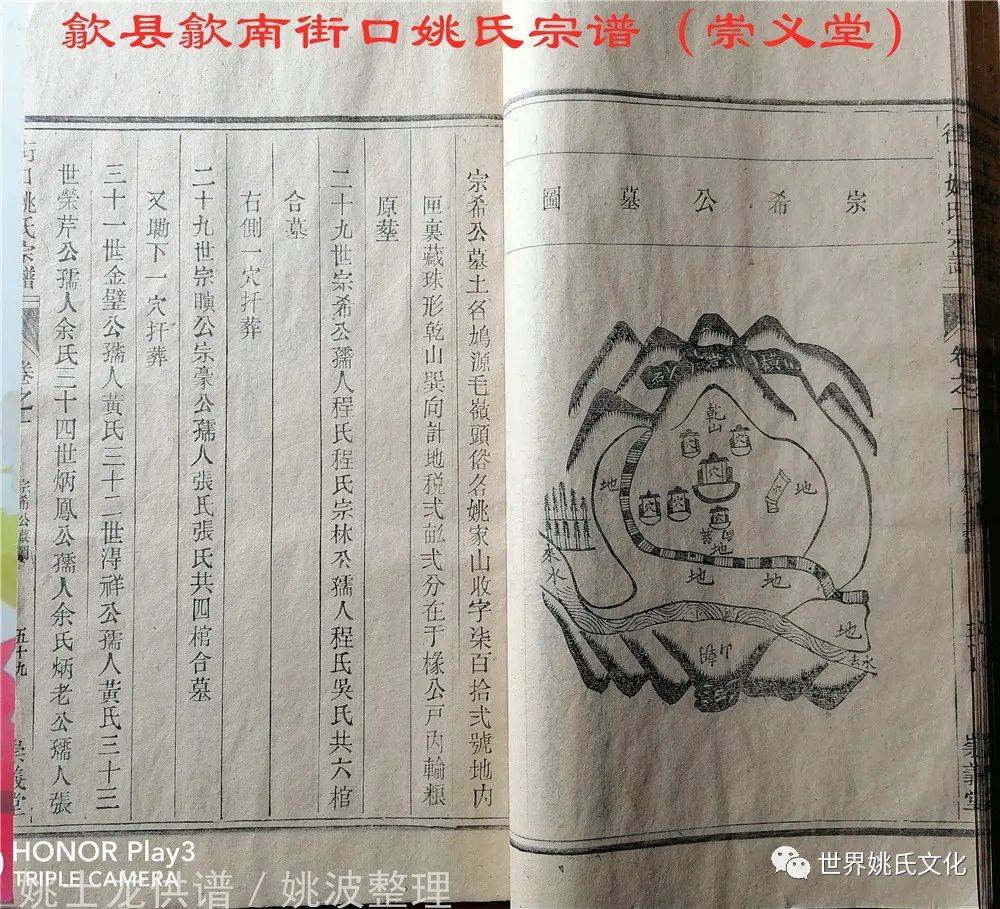 歙县歙南街口姚氏宗谱（崇义堂）
宗希公墓圖
乾山
穴
穴
穴
穴
穴
穴
地
地
地
地
地
地
來水
去水
街口姚氏宗譜
卷之一
崇義堂
宗希公墓土名鳩源毛嶺頭俗名姚家山收字柒百拾弍號地内
匣裏藏珠形乾山巽向計地税弍畆弍分在于椽公戸内輸粮
原塋
二十九世宗希公孺人程氏程氏宗林公孺人程氏吳氏共六棺
合墓
右側一穴扦葬
二十九世宗曠公宗豪公孺人張氏張氏共四棺合墓
又墈下一穴扦葬
三十一世金璧公孺人黃氏三十二世淂祥公孺人黃氏三十三
世榮芹公孺人余氏三十四世炳鳳公孺人余氏炳老公孺人張
街口姚氏宗譜
卷之一
宗希公墓圖
五十九
崇義堂
HONOR Play3
TRIPLE CAMERA
姚士龙供谱 / 姚波整理
世界姚氏文化